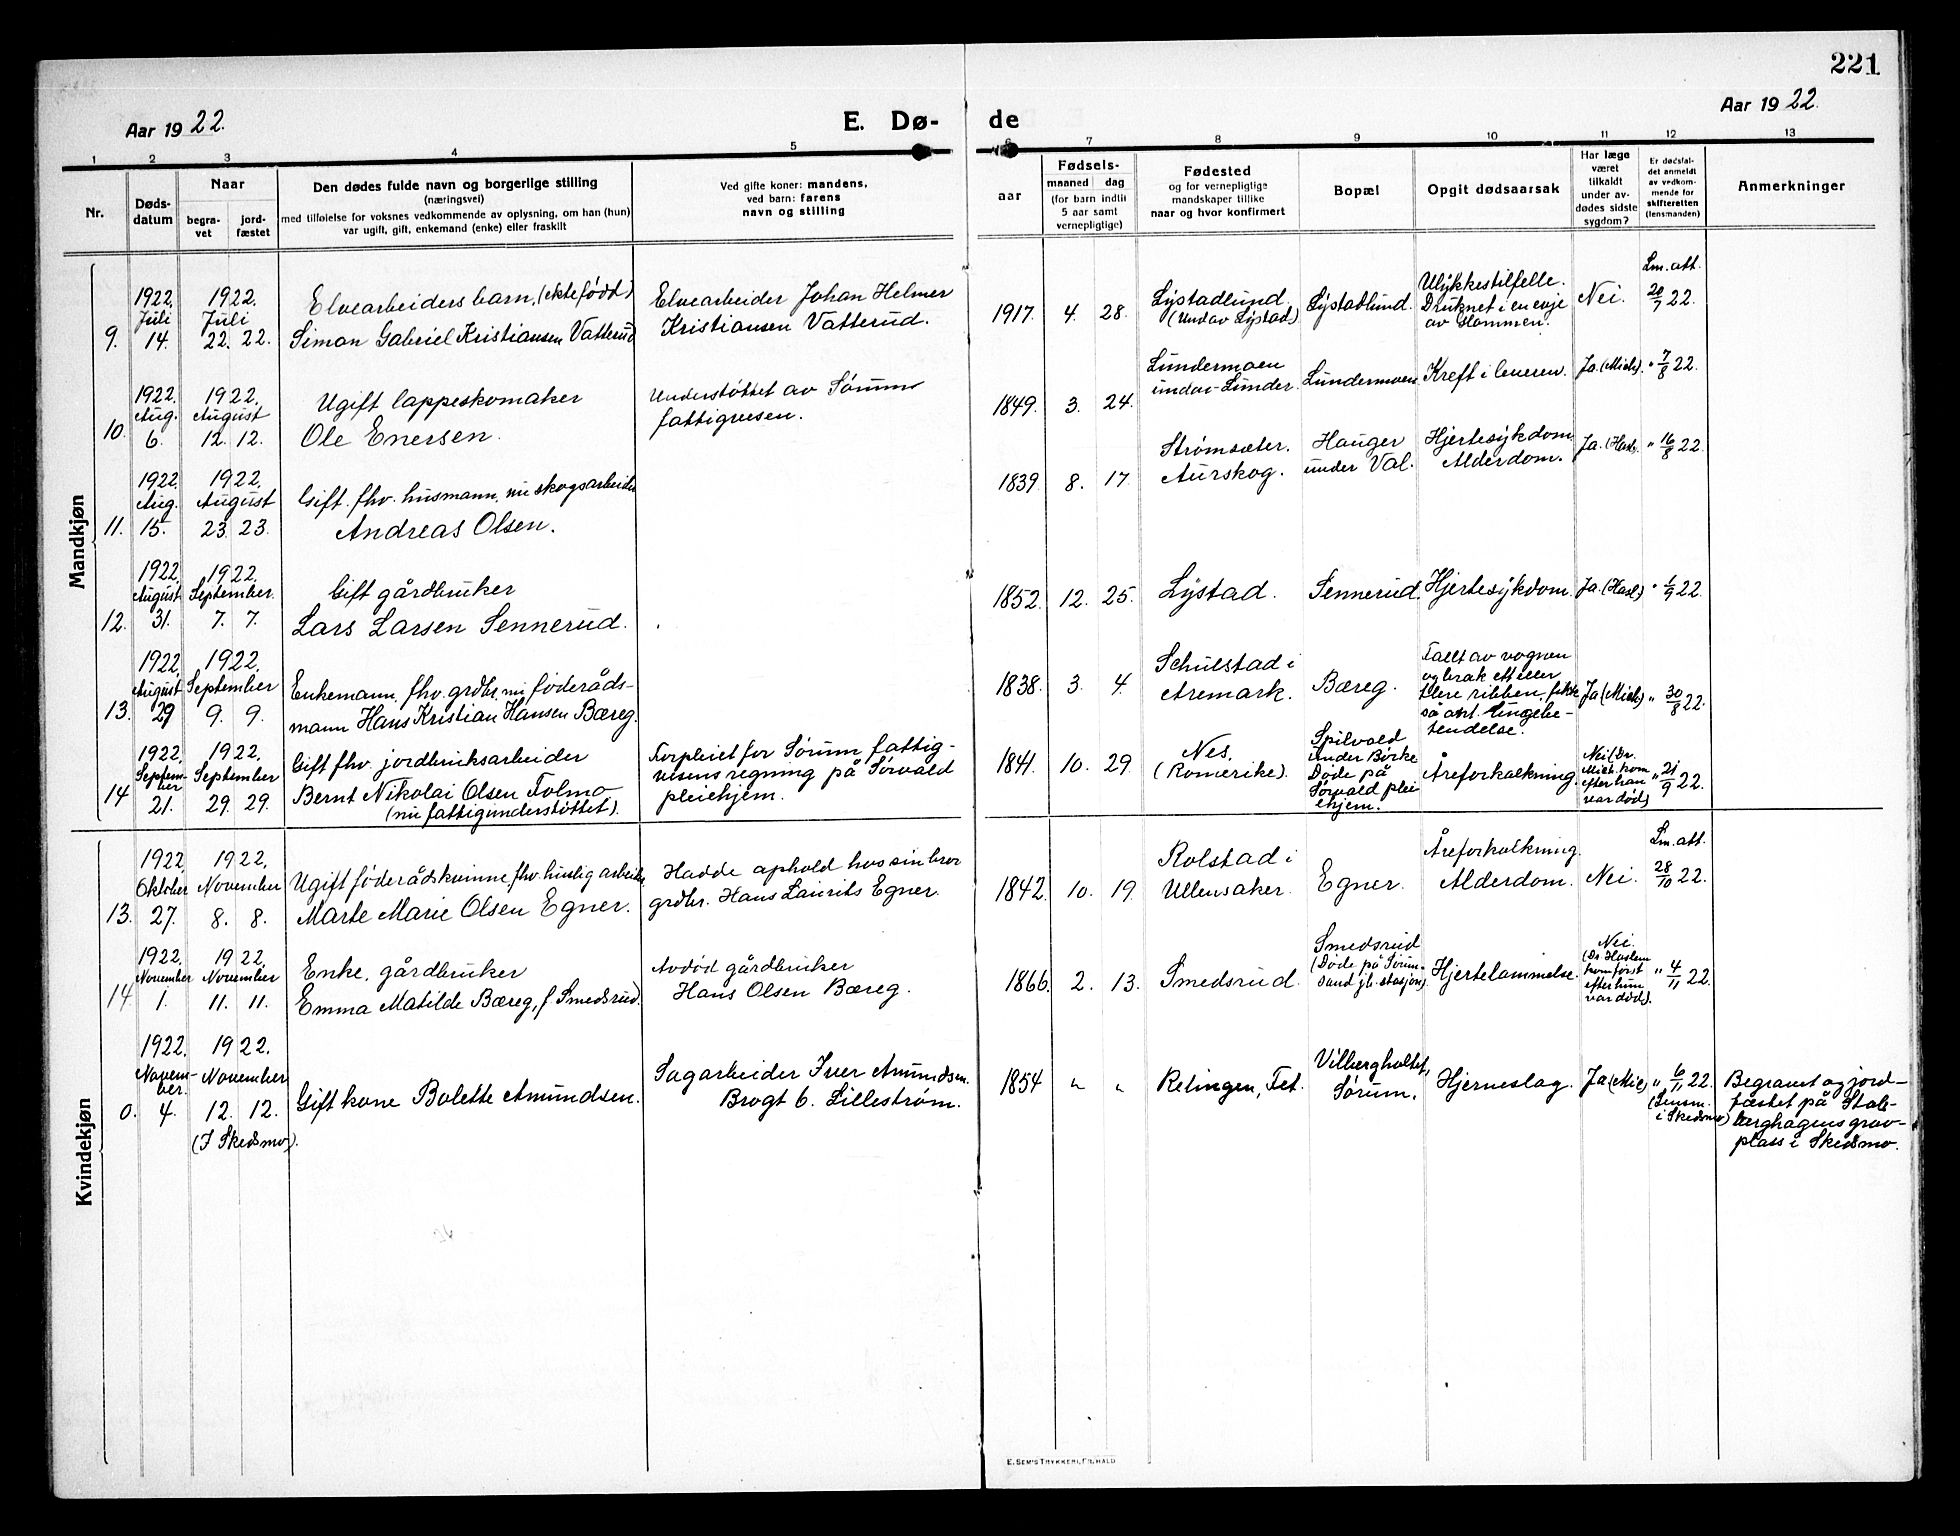 221
Aar 1922.
E. Dø-
de
Aar 1922.
1 2 3 4 5 6 7 8 9 10 11 12 13
Nr.
Døds-
datum
Naar
begra-
vet
jord-
fæstet
Den dødes fulde navn og borgerlige stilling
(næringsvei)
med tilføielse for voksnes vedkommende av oplysning, om han (hun)
var ugift, gift, enkemand (enke) eller fraskilt
Ved gifte koner: mandens,
ved barn: farens
navn og stilling
aar
Fødsels-
maaned dag
(for barn indtil
5 aar samt
vernepligtige)
Fødested
og for vernepligtige
mandskaper tillike
naar og hvor konfirmert
Bopæl
Opgit dødsaarsak
Har læge
været
tilkaldt
under av-
dødes sidste
sygdom?
Er dødsfal-
det anmeldt
av vedkom-
mende for
skifteretten
(lensmanden)
Anmerkninger
Mandkjøn
9.
1922
Juli
14.
1922.
Juli
22. 22.
Elvearbeiders barn, (ektefødt)
Simon Gabriel Kristiansen Vatterud
Elvearbeider Johan Helmer
Kristiansen Vatterud.
1917. 4. 28.
Lystadlund.
(Undav Lystad)
Lystadlund.
Ulykkestilfelle.
Druknet i en evje
av Glommen.
Nei.
Lm. att.
20/7 22.
10.
1922.
Aug.
6.
1922.
August
12. 12.
Ugift lappeskomaker
Ole Enersen.
Understøttet av Sørum
fattigvesen.
1849. 3. 24.
Lundermoen
undav Lunder.
Lundermoen
Kreft i leveren.
Ja. (Mich).
" 7/8 22.
11.
1922.
Aug.
15.
1922.
August
23. 23.
Gift. fhv. husmann, nu skogsarbeider
Andreas Olsen.
1839. 8. 17.
Strømsæter.
Aurskog.
Hauger
under Val.
Hjertesykdom
Alderdom.
Ja. (Hasl).
" 16/8 22.
12.
1922.
August
31.
1922.
September.
7. 7.
Gift gårdbruker
Lars Larsen Sennerud.
1852. 12. 25.
Lystad.
Sennerud.
Hjertesykdom.
Ja. (Hasl)
" 1/9 22.
13.
1922
August
29
1922.
September
9. 9.
Enkemann, fhv. grdbr. nu føderåds-
mann Hans Kristian Hansen Bæreg.
1838. 3. 4.
Schulstad i
Aremark.
Bæreg.
Falt av vognen
og brak ett eller
flere ribben, fikk
så akt. lungebe-
tendelse.
Ja (Mich)
" 30/8 22.
14
1922.
Septem-
ber
21.
1922.
September
29. 29.
Gift fhv. jordbruksarbeider
Bernt Nikolai Olsen Folmo
(nu fattigunderstøttet).
Forpleiet for Sørum fattig-
vesens regning på Sørvald
pleiehjem.
1841. 10. 29.
Nes.
(Romerike).
Spilvald
under Børke
Døde på
Sørvald plei
ehjem.
Åreforkalkning.
Nei (Dr.
Mich. kom
efter han
var død)
" 21/9 22.
Kvindekjøn
13.
1922
Oktober
27.
1922.
November
8. 8.
Ugift føderådskvinne, fhv. huslig arbeide,
Marte Marie Olsen Egner.
Hadde ophold hos sin bror
grdbr. Hans Laurits Egner.
1842. 10. 19.
Rolstad i
Ullensaker.
Egner.
Åreforkalkning.
Alderdom.
Nei.
Lm. att.
28/10 22.
14
1922.
November
1.
1922.
November
11. 11.
Enke, gårdbruker
Emma Matilde Bæreg, f. Smedsrud.
Avdød gårdbruker
Hans Olsen Bæreg.
1866. 2. 13.
Smedsrud.
Smedsrud
(Døde på Sørum-
sand jb. stasjon)
Hjertelammelse.
Nei.
(Dr Haslem
kom først
efter hun
var død).
" 4/11 22.
0.
1922.
Novem-
ber.
4.
1922.
November
12. 12.
(I Skedsmo).
Gift kone Bolette Amundsen.
Sagarbeider Iver Amundsen.
Brogt 6. Lillestrøm.
1854 " "
Relingen, Fet.
Vilbergholtet,
Sørum.
Hjerneslag.
Ja (Mic)
" 6/11 22.
(Lensm.
i Skedsmo)
Begravet og jord-
fæstet på Stals-
berghagens grav-
plass i Skedsmo.
E. SEM'S TRYKKERI, FR.HALD